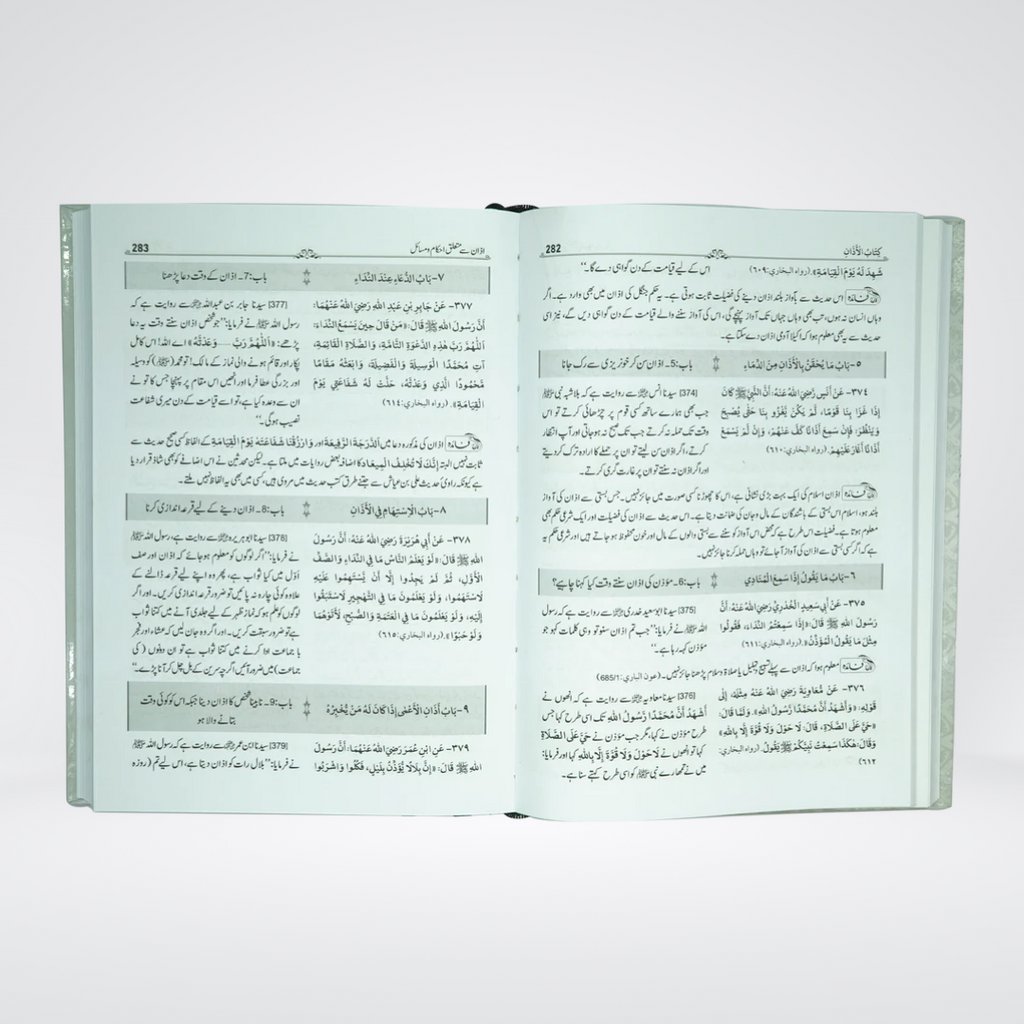 كِتَابُ الْأَذَانِ
282
شَهِدَ لَهُ يَوْمَ الْقِيَامَةِ». (رواه البخاري: ٦٠٩)
اس کے لیے قیامت کے دن گواہی دے گا۔‘‘
فائدہ اس حدیث سے بآواز بلند اذان دینے کی فضیلت ثابت ہوتی ہے۔ یہ حکم جنگل کی اذان میں بھی وارد ہے۔ اگر
وہاں انسان نہ ہوں، تب بھی وہاں جہاں تک آواز پہنچے گی، اس کی آواز سننے والے قیامت کے دن گواہی دیں گے، نیز اسی
حدیث سے یہ بھی معلوم ہوا کہ اکیلا آدمی اذان دے سکتا ہے۔
٥- بَابُ مَا يُحْقَنُ بِالْأَذَانِ مِنَ الدِّمَاءِ
باب: 5۔ اذان سن کر خونریزی سے رک جانا
٣٧٤- عَنْ أَنَسٍ رَضِيَ اللهُ عَنْهُ: أَنَّ النَّبِيَّ ﷺ كَانَ
إِذَا غَزَا بِنَا قَوْمًا، لَمْ يَكُنْ يَغْزُو بِنَا حَتَّى يُصْبِحَ
وَيَنْظُرَ، فَإِنْ سَمِعَ أَذَانًا كَفَّ عَنْهُمْ، وَإِنْ لَمْ يَسْمَعْ
أَذَانًا أَغَارَ عَلَيْهِمْ. (رواه البخاري: ٦١٠)
[374] سیدنا انس ؓ سے روایت ہے کہ بلاشبہ نبی ﷺ
جب بھی ہمارے ساتھ کسی قوم پر چڑھائی کرتے تو اس
وقت تک حملہ نہ کرتے جب تک صبح نہ ہوجاتی اور آپ انتظار
کرتے، اگر اذان سن لیتے تو ان پر حملے کا ارادہ ترک کردیتے
اور اگر اذان نہ سنتے تو ان پر غارت گری کرتے۔
فائدہ اذان اسلام کی ایک بہت بڑی نشانی ہے، اس کا چھوڑنا کسی صورت میں جائز نہیں۔ جس بستی سے اذان کی آواز
بلند ہو، اسلام اس بستی کے باشندگان کے مال و جان کی ضمانت دیتا ہے۔ اس حدیث سے اذان کی فضیلت اور ایک شرعی حکم بھی
معلوم ہوتا ہے۔ فضیلت اس طرح ہے کہ محض اس آواز کو سننے سے بستی والوں کے مال اور خون محفوظ ہو جاتے ہیں اور شرعی حکم یہ
ہے کہ اگر کسی بستی سے اذان کی آواز آجائے تو وہاں حملہ کرنا جائز نہیں۔
٦- بَابُ مَا يَقُولُ إِذَا سَمِعَ الْمُنَادِي
باب: 6۔ مؤذن کی اذان سنتے وقت کیا کہنا چاہیے؟
٣٧٥- عَنْ أَبِي سَعِيدٍ الْخُدْرِيِّ رَضِيَ اللهُ عَنْهُ: أَنَّ
رَسُولَ اللهِ ﷺ قَالَ: «إِذَا سَمِعْتُمُ النِّدَاءَ، فَقُولُوا
مِثْلَ مَا يَقُولُ الْمُؤَذِّنُ». (رواه البخاري: ٦١١)
[375] سیدنا ابو سعید خدری ؓ سے روایت ہے کہ رسول
اللہ ﷺ نے فرمایا: ’’جب تم اذان سنو تو وہی کلمات کہو جو
مؤذن کہہ رہا ہے۔‘‘
فائدہ معلوم ہوا کہ اذان سے پہلے تسبیح و تہلیل یا صلاۃ و سلام پڑھنا جائز نہیں۔ (عون الباري: 685/1)
٣٧٦- عَنْ مُعَاوِيَةَ رَضِيَ اللهُ عَنْهُ مِثْلَهُ، إِلَى
قَوْلِهِ: «وَأَشْهَدُ أَنَّ مُحَمَّدًا رَّسُولُ اللهِ». وَلَمَّا قَالَ:
«حَيَّ عَلَى الصَّلَاةِ، قَالَ: لَا حَوْلَ وَلَا قُوَّةَ إِلَّا بِاللهِ»
وَقَالَ: هٰكَذَا سَمِعْتُ نَبِيَّكُمْ ﷺ يَقُولُ. (رواه البخاري:
٦١٢)
[376] سیدنا معاویہ ؓ سے روایت ہے کہ انھوں نے
أَشْهَدُ أَنَّ مُحَمَّدًا رَّسُولُ اللهِ تک اسی طرح کہا جس
طرح مؤذن نے کہا، مگر جب مؤذن نے حَيَّ عَلَى الصَّلَاةِ
کہا تو انھوں نے لَا حَوْلَ وَلَا قُوَّةَ إِلَّا بِاللهِ کہا اور فرمایا:
میں نے تمھارے نبی ﷺ کو اسی طرح کہتے سنا ہے۔
اذان سے متعلق احکام و مسائل
283
٧- بَابُ الدُّعَاءِ عِنْدَ النِّدَاءِ
باب: 7۔ اذان کے وقت دعا پڑھنا
٣٧٧- عَنْ جَابِرِ بْنِ عَبْدِ اللهِ رَضِيَ اللهُ عَنْهُمَا:
أَنَّ رَسُولَ اللهِ ﷺ قَالَ: «مَنْ قَالَ حِينَ يَسْمَعُ النِّدَاءَ:
اَللّٰهُمَّ رَبَّ هٰذِهِ الدَّعْوَةِ التَّامَّةِ، وَالصَّلَاةِ الْقَائِمَةِ،
آتِ مُحَمَّدًا الْوَسِيلَةَ وَالْفَضِيلَةَ، وَابْعَثْهُ مَقَامًا
مَحْمُودًا الَّذِي وَعَدْتَهُ، حَلَّتْ لَهُ شَفَاعَتِي يَوْمَ
الْقِيَامَةِ». (رواه البخاري: ٦١٤)
[377] سیدنا جابر بن عبداللہ ؓ سے روایت ہے کہ
رسول اللہ ﷺ نے فرمایا: ’’جو شخص اذان سنتے وقت یہ دعا
پڑھے: «اَللّٰهُمَّ رَبَّ .... وَعَدْتَهُ» اے اللہ! اس کامل
پکار اور قائم ہونے والی نماز کے مالک! تو محمد (ﷺ) کو وسیلہ
اور بزرگی عطا فرما اور انھیں اس مقام پر پہنچا جس کا تو نے
ان سے وعدہ کیا ہے، تو اسے قیامت کے دن میری شفاعت
نصیب ہوگی۔‘‘
فائدہ اذان کی مذکورہ دعا میں اَلدَّرَجَةَ الرَّفِيعَةَ اور وَارْزُقْنَا شَفَاعَتَهُ يَوْمَ الْقِيَامَةِ کے الفاظ کسی صحیح حدیث سے
ثابت نہیں البتہ إِنَّكَ لَا تُخْلِفُ الْمِيعَادَ کا اضافہ بعض روایات میں ملتا ہے۔ لیکن محدثین نے اس اضافے کو بھی شاذ قرار دیا
ہے کیونکہ راویٔ حدیث علی بن عیاش سے جتنے طرق کتب حدیث میں مروی ہیں، کسی میں بھی یہ الفاظ نہیں ملتے۔
٨- بَابُ الْاِسْتِهَامِ فِي الْأَذَانِ
باب: 8۔ اذان دینے کے لیے قرعہ اندازی کرنا
٣٧٨- عَنْ أَبِي هُرَيْرَةَ رَضِيَ اللهُ عَنْهُ: أَنَّ رَسُولَ
اللهِ ﷺ قَالَ: «لَوْ يَعْلَمُ النَّاسُ مَا فِي النِّدَاءِ وَالصَّفِّ
الْأَوَّلِ، ثُمَّ لَمْ يَجِدُوا إِلَّا أَنْ يَسْتَهِمُوا عَلَيْهِ
لَاسْتَهَمُوا، وَلَوْ يَعْلَمُونَ مَا فِي التَّهْجِيرِ لَاسْتَبَقُوا
إِلَيْهِ، وَلَوْ يَعْلَمُونَ مَا فِي الْعَتَمَةِ وَالصُّبْحِ، لَأَتَوْهُمَا
وَلَوْ حَبْوًا». (رواه البخاري: ٦١٥)
[378] سیدنا ابو ہریرہ ؓ سے روایت ہے، رسول اللہ ﷺ
نے فرمایا: ’’اگر لوگوں کو معلوم ہوجائے کہ اذان اور صف
اوّل میں کیا ثواب ہے، پھر وہ اپنے لیے قرعہ ڈالنے کے
علاوہ کوئی چارہ نہ پائیں تو ضرور قرعہ اندازی کریں۔ اور اگر
لوگوں کو علم ہو کہ نماز ظہر کے لیے جلدی آنے میں کتنا ثواب
ہے تو ضرور سبقت کریں۔ اور اگر وہ جان لیں کہ عشاء اور فجر
با جماعت ادا کرنے میں کتنا ثواب ہے تو ان دونوں (کی
جماعت) میں ضرور آئیں اگرچہ سرین کے بل چل کر آنا پڑے۔‘‘
٩- بَابُ أَذَانِ الْأَعْمٰى إِذَا كَانَ لَهُ مَنْ يُّخْبِرُهُ
باب: 9۔ نابینا شخص کا اذان دینا جبکہ اس کو کوئی وقت
بتانے والا ہو
٣٧٩- عَنِ ابْنِ عُمَرَ رَضِيَ اللهُ عَنْهُمَا: أَنَّ رَسُولَ
اللهِ ﷺ قَالَ: «إِنَّ بِلَالًا يُؤَذِّنُ بِلَيْلٍ، فَكُلُوا وَاشْرَبُوا
[379] سیدنا ابن عمر ؓ سے روایت ہے کہ رسول اللہ ﷺ
نے فرمایا: ’’بلال رات کو اذان دیتا ہے، اس لیے تم (روزہ